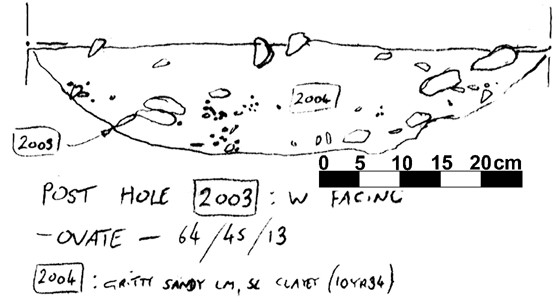 2004
2003
0 5 10 15 20cm
POST HOLE 2003 : W FACING
- OVATE - 64/45/13
2004 : GRITTY SANDY LM, SL CLAYEY (10YR34)